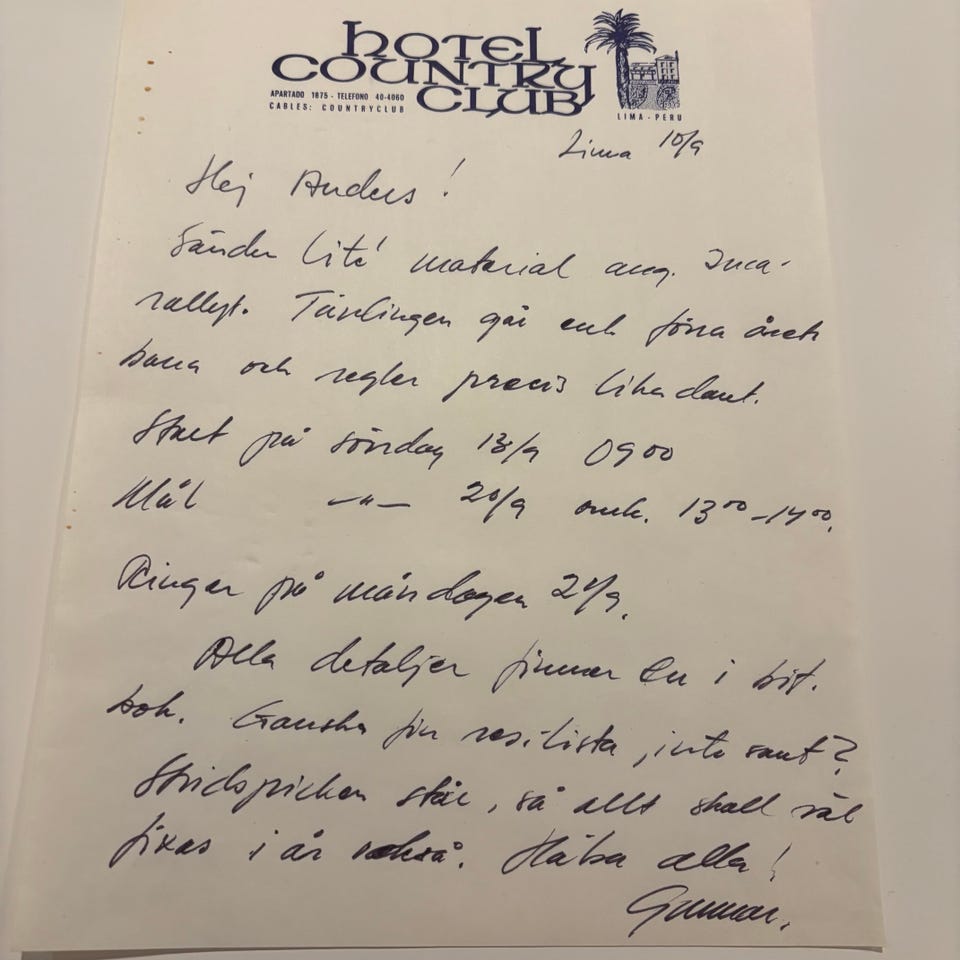 HOTEL
COUNTRY
CLUB
APARTADO 1875 - TELEFONO 40-4060
CABLES: COUNTRYCLUB
LIMA - PERU
Lima 10/9
Hej Anders!
Sänder lite material ang. Inca-
rallyt. Tävlingen går enl förra årets
bana och regler precis likadant.
Start på söndag 13/9 09 00
Mål —"— 20/9 omk. 13 00 - 14 00.
Ringer på måndagen 21/9.
Alla detaljer finner du i bif.
bok. Ganska fin res.lista, inte sant?
Stridspricken står, så allt skall väl
fixas i år också. Hälsa alla!
Gunnar.